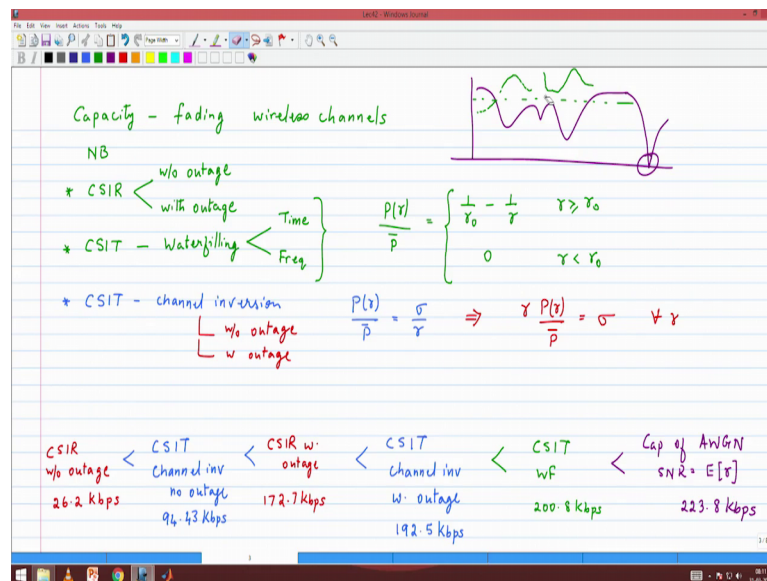 Lec42 - Windows Journal
File Edit View Insert Actions Tools Help
Page Width
B I
Capacity - fading wireless channels
NB
* CSIR < w/o outage
with outage
* CSIT - Waterfilling < Time
Freq
P(γ)/P̄ = { 1/γ₀ - 1/γ γ ≥ γ₀
0 γ < γ₀
* CSIT - channel inversion P(γ)/P̄ = σ/γ ⇒ γ P(γ)/P̄ = σ ∀ γ
w/o outage
w outage
CSIR w/o outage 26.2 Kbps < CSIT channel inv no outage 94.43 Kbps < CSIR w. outage 172.7 Kbps < CSIT channel inv w. outage 192.5 Kbps < CSIT WF 200.8 Kbps < Cap of AWGN SNR = E[γ] 223.8 Kbps